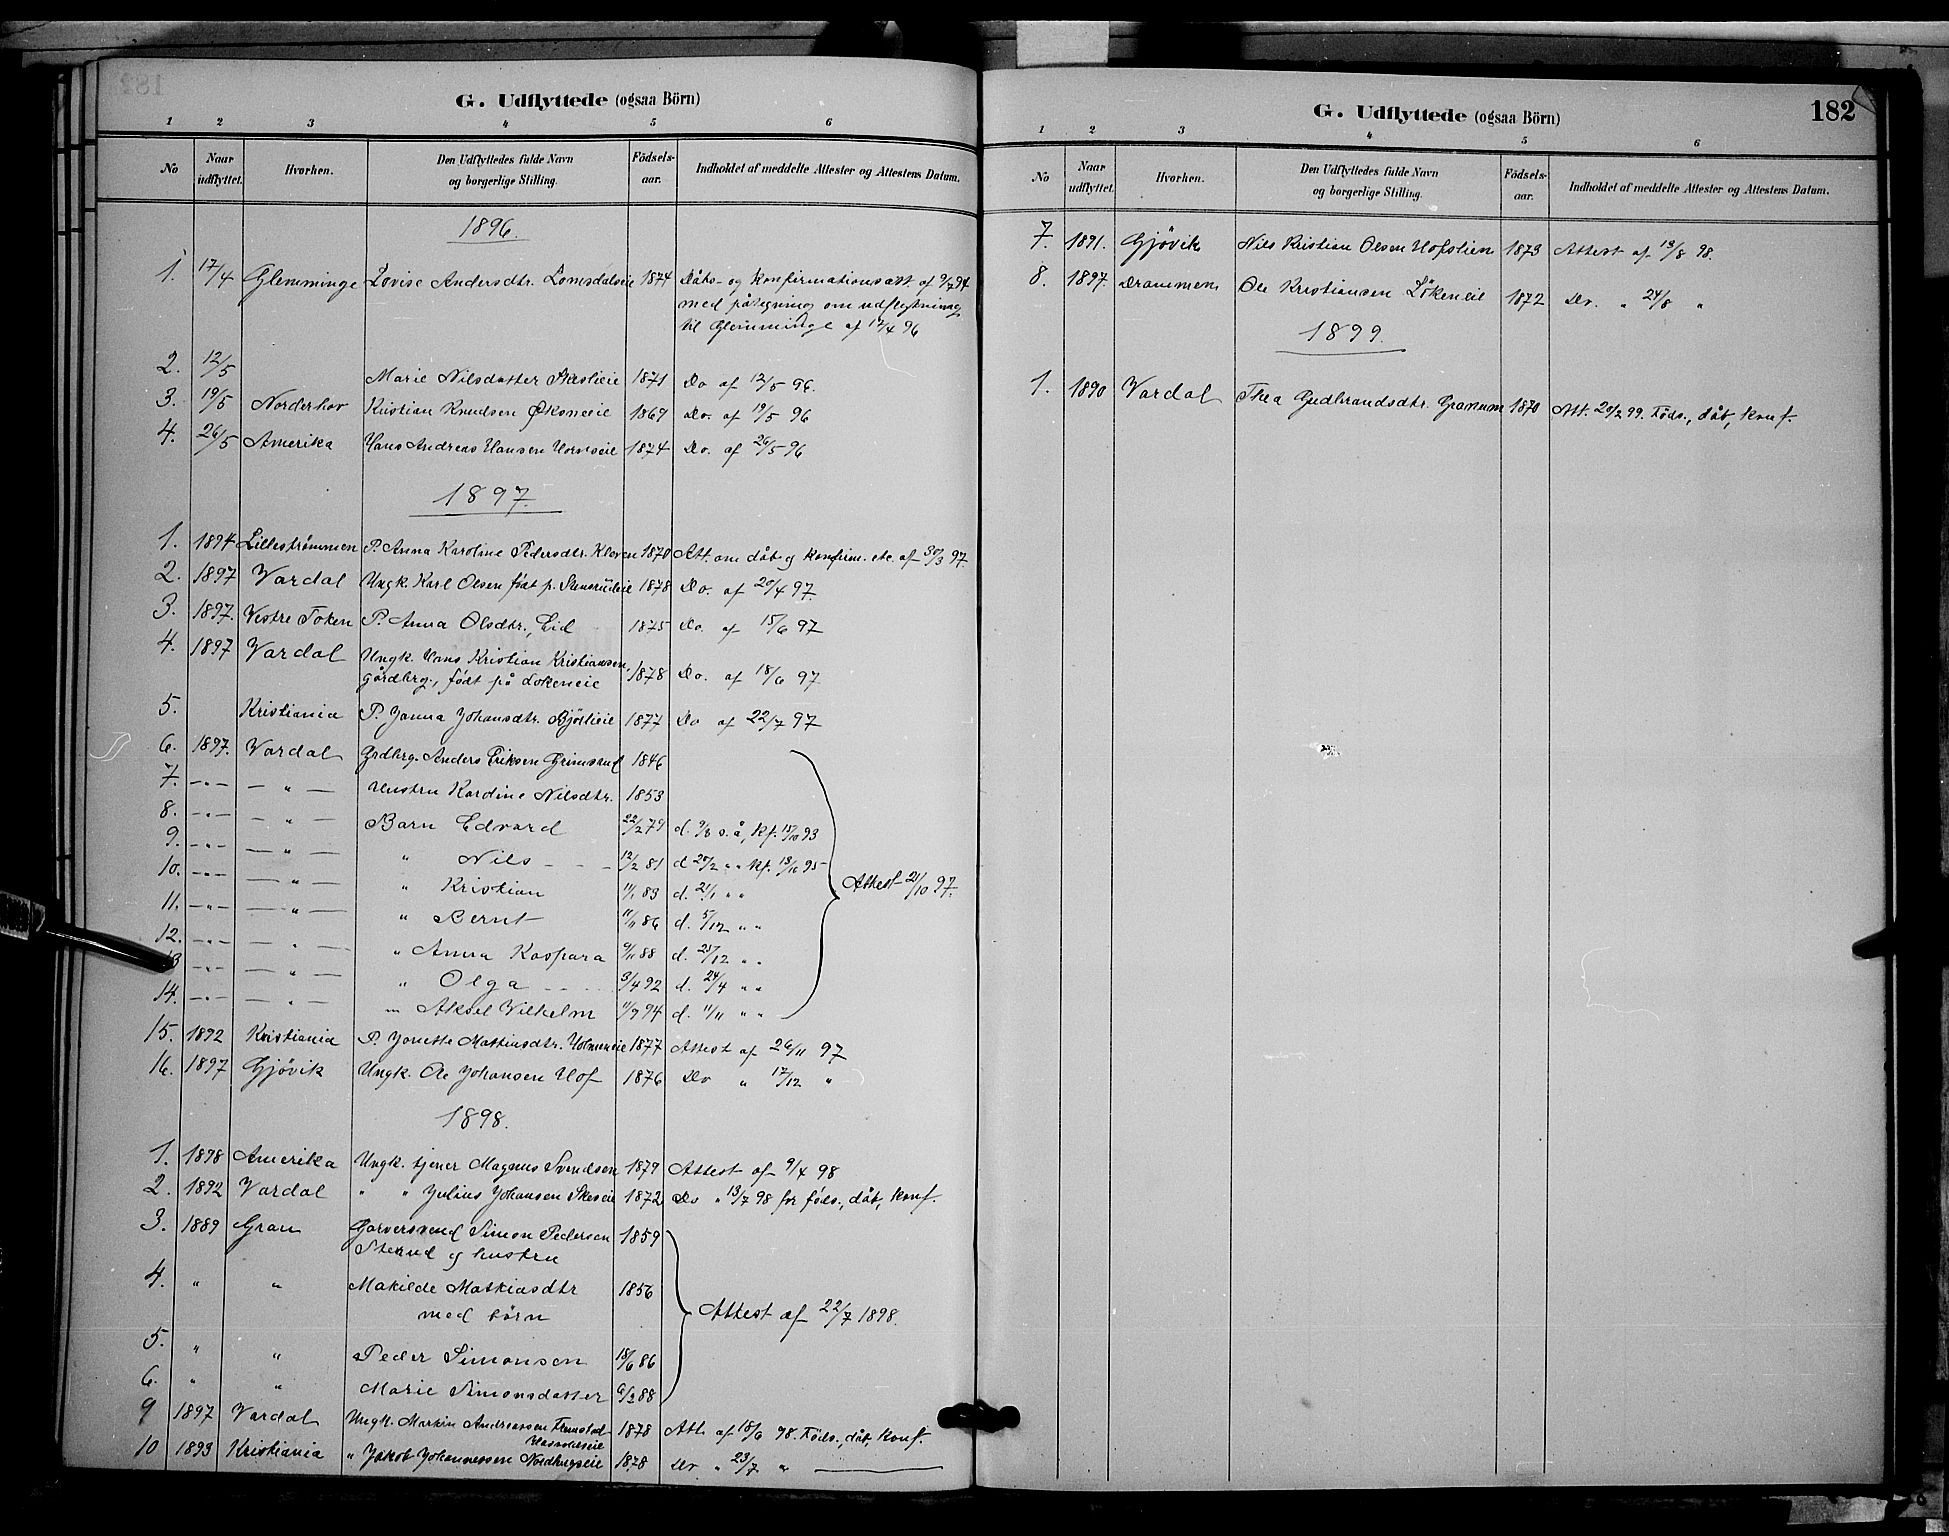 G. Udflyttede (ogsaa Börn)
1 2 3 4 5 6
No Naar udflyttet. Hvorhen. Den Udflyttedes fulde Navn og borgerlige Stilling. Födsels-aar. Indholdet af meddelte Attester og Attestens Datum.
1896.
1. 17/4 Glemminge Lovise Andersdtr. Lomsdalseie 1874 Dåbs- og konfirmationsatt. af
med påtegning om udflytning
til Glemminge af 17/4 96
2. 12/5 Marie Nilsdatter 1871 Do af 12/5 96.
3. 19/5 Norderhov Kristian Knudsen 1869 Do. af 19/5 96
4. 26/5 Amerika Hans Andreas Hansen 1874 Do. af 26/5 96
1897.
1. 1894 Lillestrømmen P. Anna Karoline Pedersdtr. 1870 Att. om dåb og konfirm. etc. af 30/3 97.
2. 1897 Vardal Ungk. Karl Olsen født p. 1878 Do. af 20/4 97.
3. 1897. Vestre Token P. Anna Olsdtr., Eid 1875 Do. af 15/6 97
4. 1897 Vardal Ungk. Hans Kristian Kristiansen,
gårdbrg., født på Løkeneie 1878 Do. af 18/6 97.
5. Kristiania P. Janna Johansdtr. 1877 Do af 22/7 97
6. 1897. Vardal Grdbrg. Anders Eriksen Grimsrud 1846
7. -"- -"- Hustru Kardine Nilsdtr. 1853
8. -"- -"- Barn Edvard 22/2 79 d. 9/3 s. å, Kf. 15/10 93
9. -"- -"- " Nils 12/2 81 d 20/2 " " Kf. 13/10 95
10. -"- -"- " Kristian 11/1 83 d. 21/1 " "
Attest 21/10 97.
11. -"- -"- " Bernt 11/11 86 d. 5/12 " "
12. -"- -"- " Anna Kaspara 9/11 88 d. 25/12 " "
13 -"- -"- " Olga 3/4 92 d. 24/4 " "
14. -"- -"- " Aksel Vilhelm 11/9 94 d. 11/11 " "
15. 1892 Kristiania P. Jonette Mathiasdtr. Holmeneie 1877 Attest af 26/11 97
16. 1897 Gjøvik Ungk. Ole Johansen Hof 1876 Do " 17/12 "
1898.
1. 1898 Amerika Ungk. tjener Magnus Svendsen 1879 Attest af 9/4 98
2. 1892 Vardal " " Julius Johansen 1872 Do " 13/7 98 for føds., dåb, konf.
3. 1889 Gran Garversvend Simon Pedersen 1859
og hustru
4. " " Matilde Mathiasdtr 1856
med børn
Attest af 22/7 1898.
5. " " Peder Simonsen 18/6 86
6. " " Marie Simonsdatter 6/2 88
9 1897 Vardal Ungk. Martin Andreassen 1878 Att. af 18/6 98. Føds., dåb, konf.
10 1893 Kristiania " Jakob Johannessen Nordhugseie 1878 Do " 23/7 "
G. Udflyttede (ogsaa Börn) 182
1 2 3 4 5 6
No Naar udflyttet. Hvorhen. Den Udflyttedes fulde Navn og borgerlige Stilling. Födsels-aar. Indholdet af meddelte Attester og Attestens Datum.
7. 1891. Gjøvik Nils Kristian Olsen Hofslien 1873 Attest af 13/8 98.
8. 1897. Drammen Ole Kristiansen Løkeneie 1872 Do. " 24/8 "
1899.
1. 1890 Vardal Thea Gudbrandsdtr. Granum 1870 Att. 20/2 99. Føds., dåb, konf.